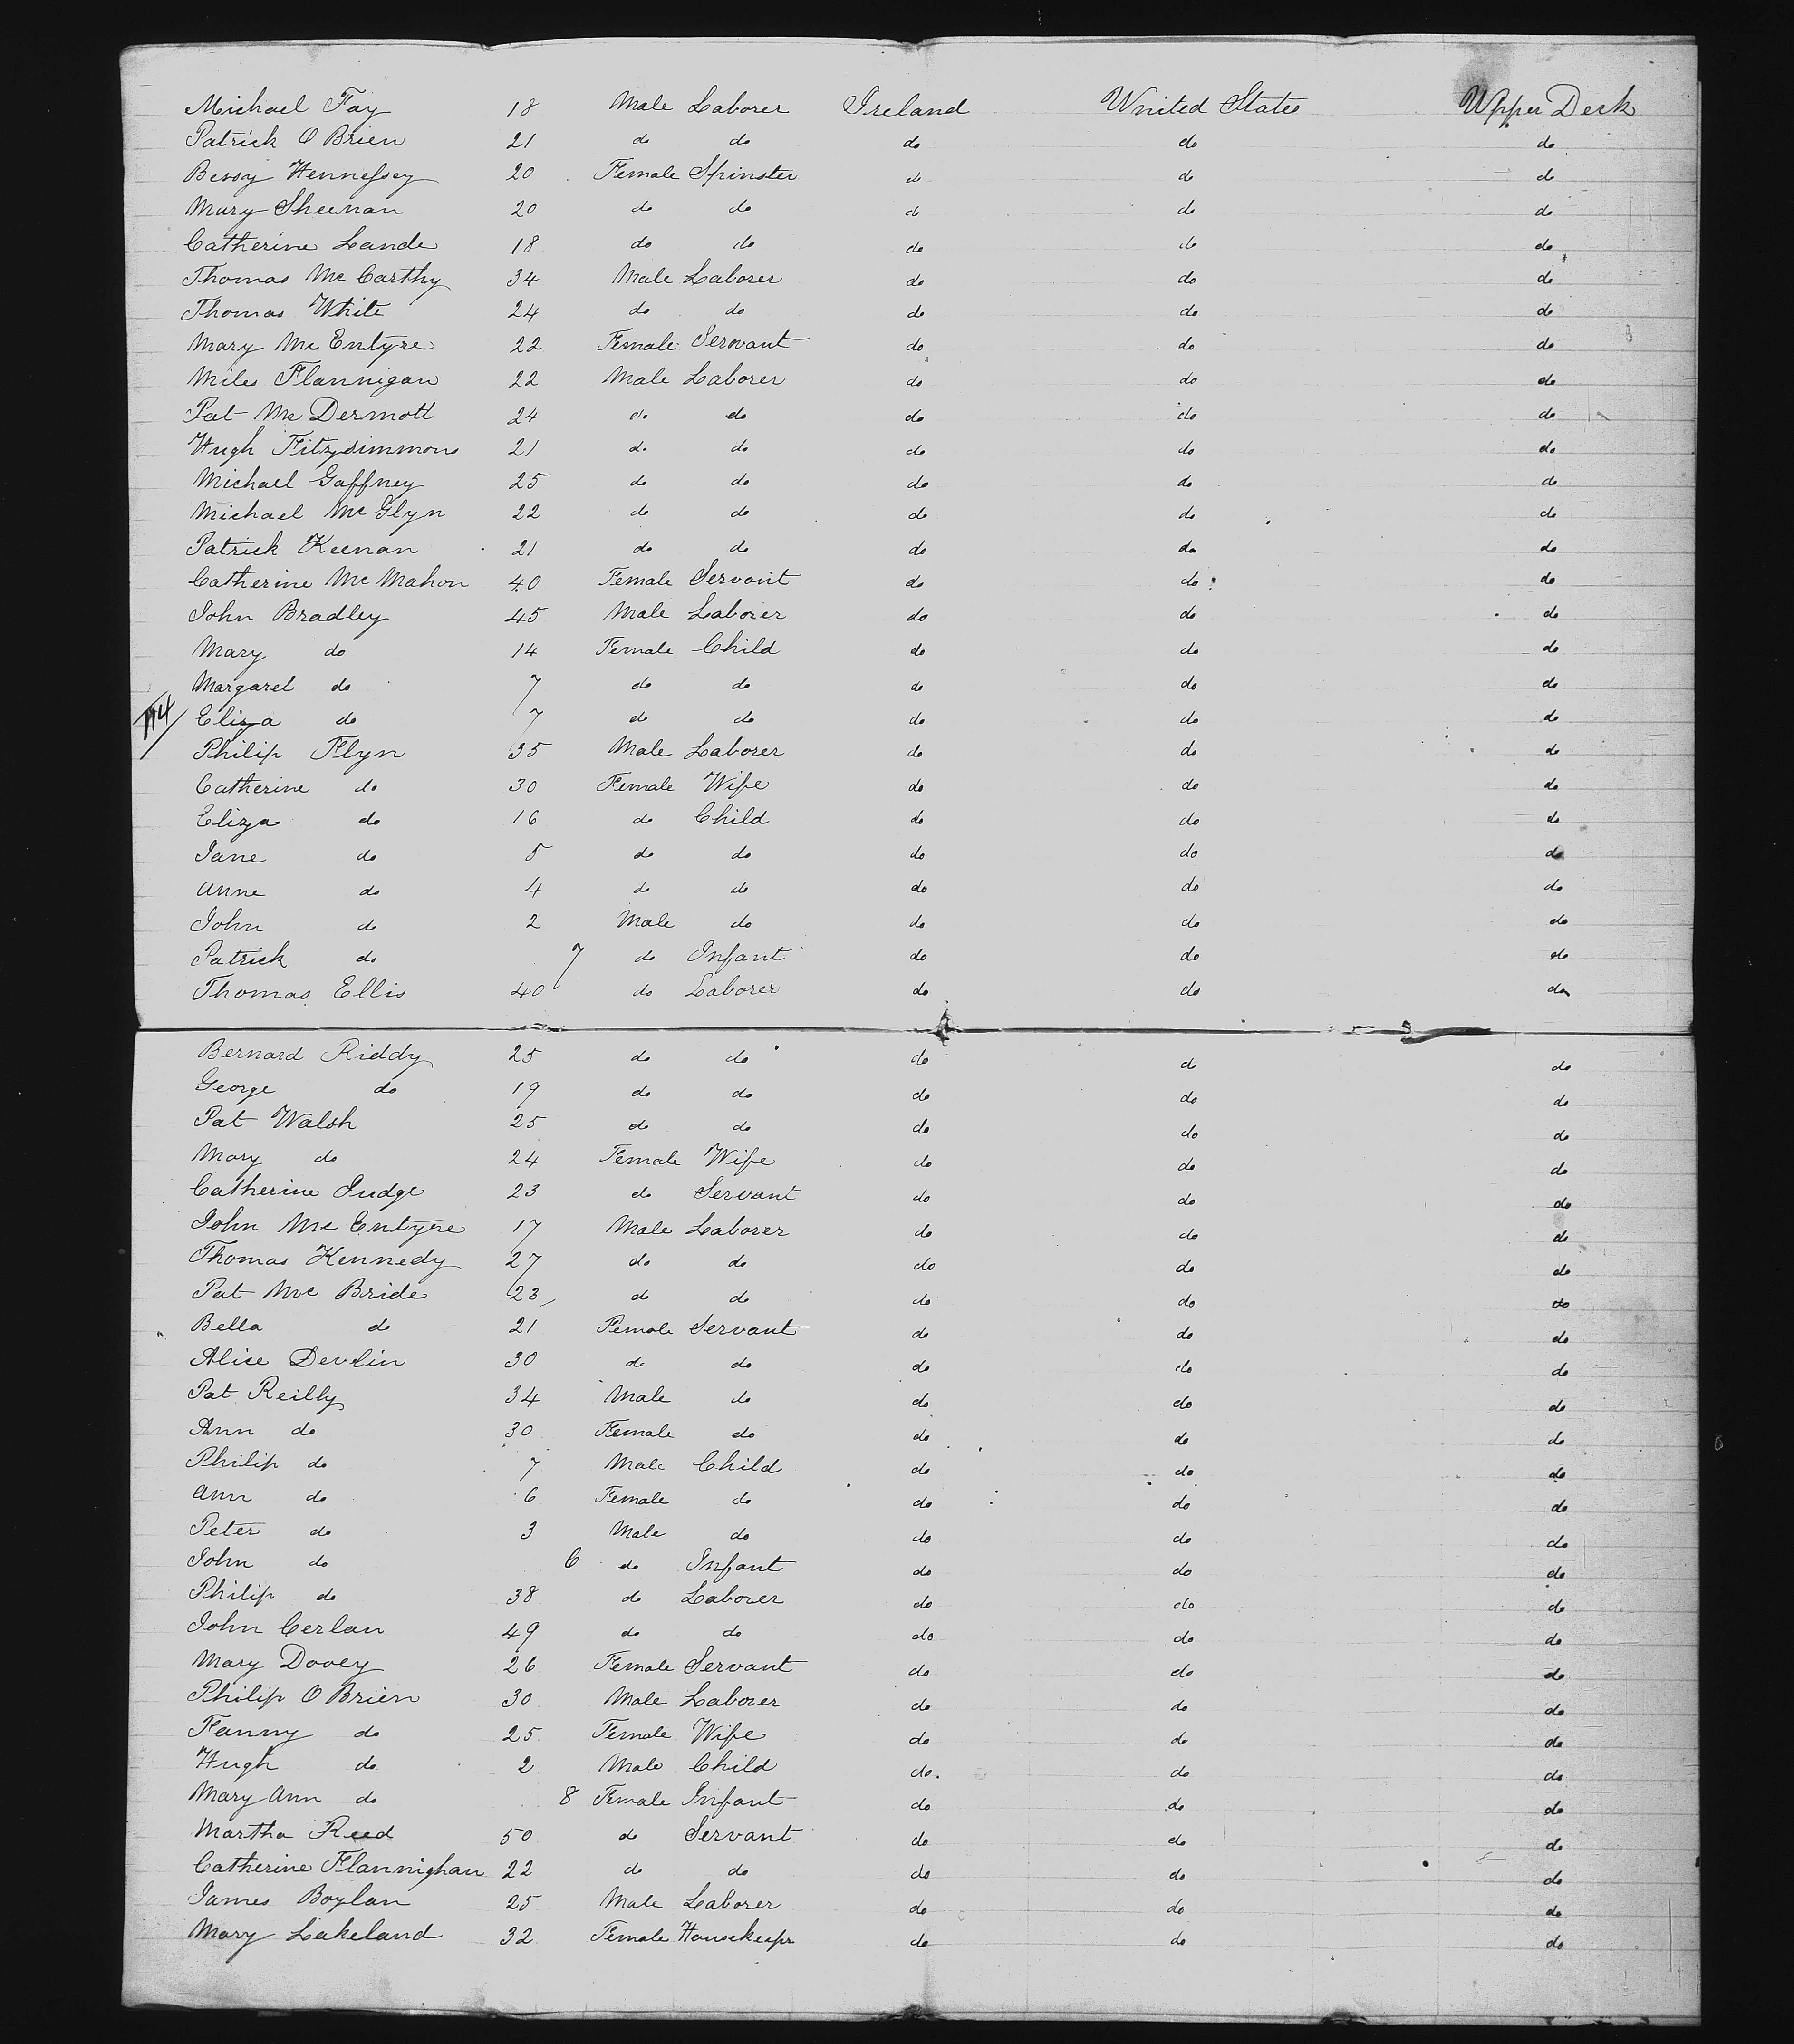 Michael Fay 18 Male Laborer Ireland United States Upper Deck
Patrick O Brien 21 do do do do do
Bessy Hennessey 20 Female Spinster do do do
Mary Sheenan 20 do do do do do
Catherine Lande 18 do do do do do
Thomas Mc Carthy 34 Male Laborer do do do
Thomas White 24 do do do do do
Mary Mc Entyre 22 Female Servant do do do
Miles Flannigan 22 Male Laborer do do do
Pat Mc Dermott 24 do do do do do
Hugh Fitzsimmons 21 do do do do do
Michael Gaffney 25 do do do do do
Michael Mc Glyn 22 do do do do do
Patrick Keenan 21 do do do do do
Catherine Mc Mahon 40 Female Servant do do do
John Bradley 45 Male Laborer do do do
Mary do 14 Female Child do do do
Margaret do 7 do do do do do
Eliza do 7 do do do do do
Philip Flyn 35 Male Laborer do do do
Catherine do 30 Female Wife do do do
Eliza do 16 do Child do do do
Jane do 5 do do do do do
Anne do 4 do do do do do
John do 2 Male do do do do
Patrick do 7 do Infant do do do
Thomas Ellis 40 do Laborer do do do
Bernard Riddy 25 do do do do do
George do 19 do do do do do
Pat Walsh 25 do do do do do
Mary do 24 Female Wife do do do
Catherine Judge 23 do Servant do do do
John Mc Entyre 17 Male Laborer do do do
Thomas Kennedy 27 do do do do do
Pat Mc Bride 23 do do do do do
Bella do 21 Female Servant do do do
Alice Devlin 30 do do do do do
Pat Reilly 34 Male do do do do
Ann do 30 Female do do do do
Philip do 7 Male Child do do do
Ann do 6 Female do do do do
Peter do 3 Male do do do do
John do 6 do Infant do do do
Philip do 38 do Laborer do do do
John Cerlan 49 do do do do do
Mary Dovey 26 Female Servant do do do
Philip O Brien 30 Male Laborer do do do
Fanny do 25 Female Wife do do do
Hugh do 2 Male Child do. do do
Mary Ann do 8 Female Infant do do do
Martha Reed 50 do Servant do do do
Catherine Flannighan 22 do do do do do
James Boylan 25 Male Laborer do do do
Mary Lakeland 32 Female Housekeepr do do do